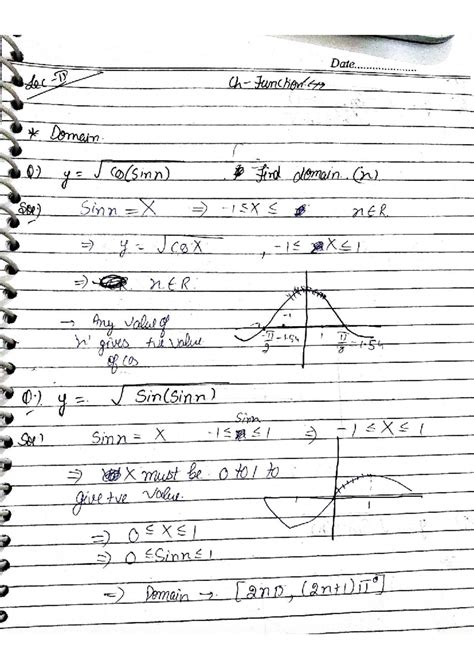 Date.....................
Lec-II
Ch-Function
* Domain
Q.) y = √cos(Sinn) Find domain (n)
Sol) Sinn = X ⇒ -1≤X≤ n∈R
⇒ y = √cosX , -1≤ X≤1
⇒ n∈R
→ Any value of
'n' gives +ve value
of cos
-1 1
-π/2 -1.54 π/2 1.54
Q.) y = √Sin(Sinn)
Sol) Sinn = X -1≤ Sinn ≤1 ⇒ -1≤X≤1
⇒ X must be 0 to 1 to
give +ve value.
1
⇒ 0≤X≤1
⇒ 0≤Sinn≤1
⇒ Domain → [2nπ, (2n+1)π]